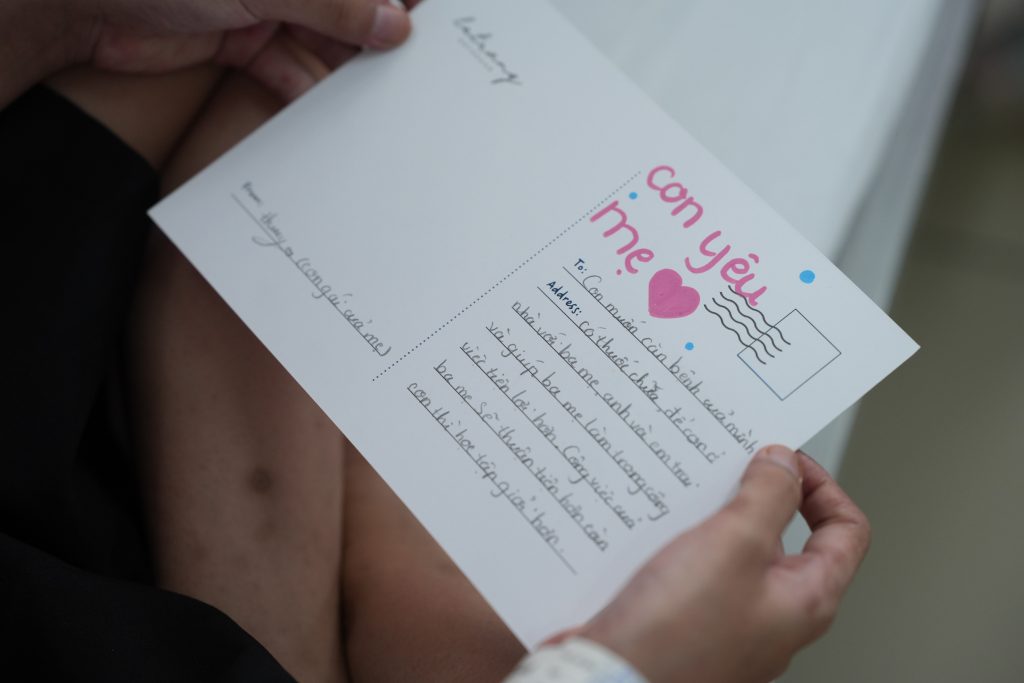 From: thuỳ an (con gái của mẹ)
con yêu
mẹ
To: Con muốn căn bệnh của mình
Address: có thuốc chữa, để con ở
nhà với ba mẹ, anh và em trai
và giúp ba mẹ làm trong công
việc tiện lợi hơn. Công việc của
ba mẹ sẽ thuận tiện hơn còn
con thì học tập giỏi hơn.